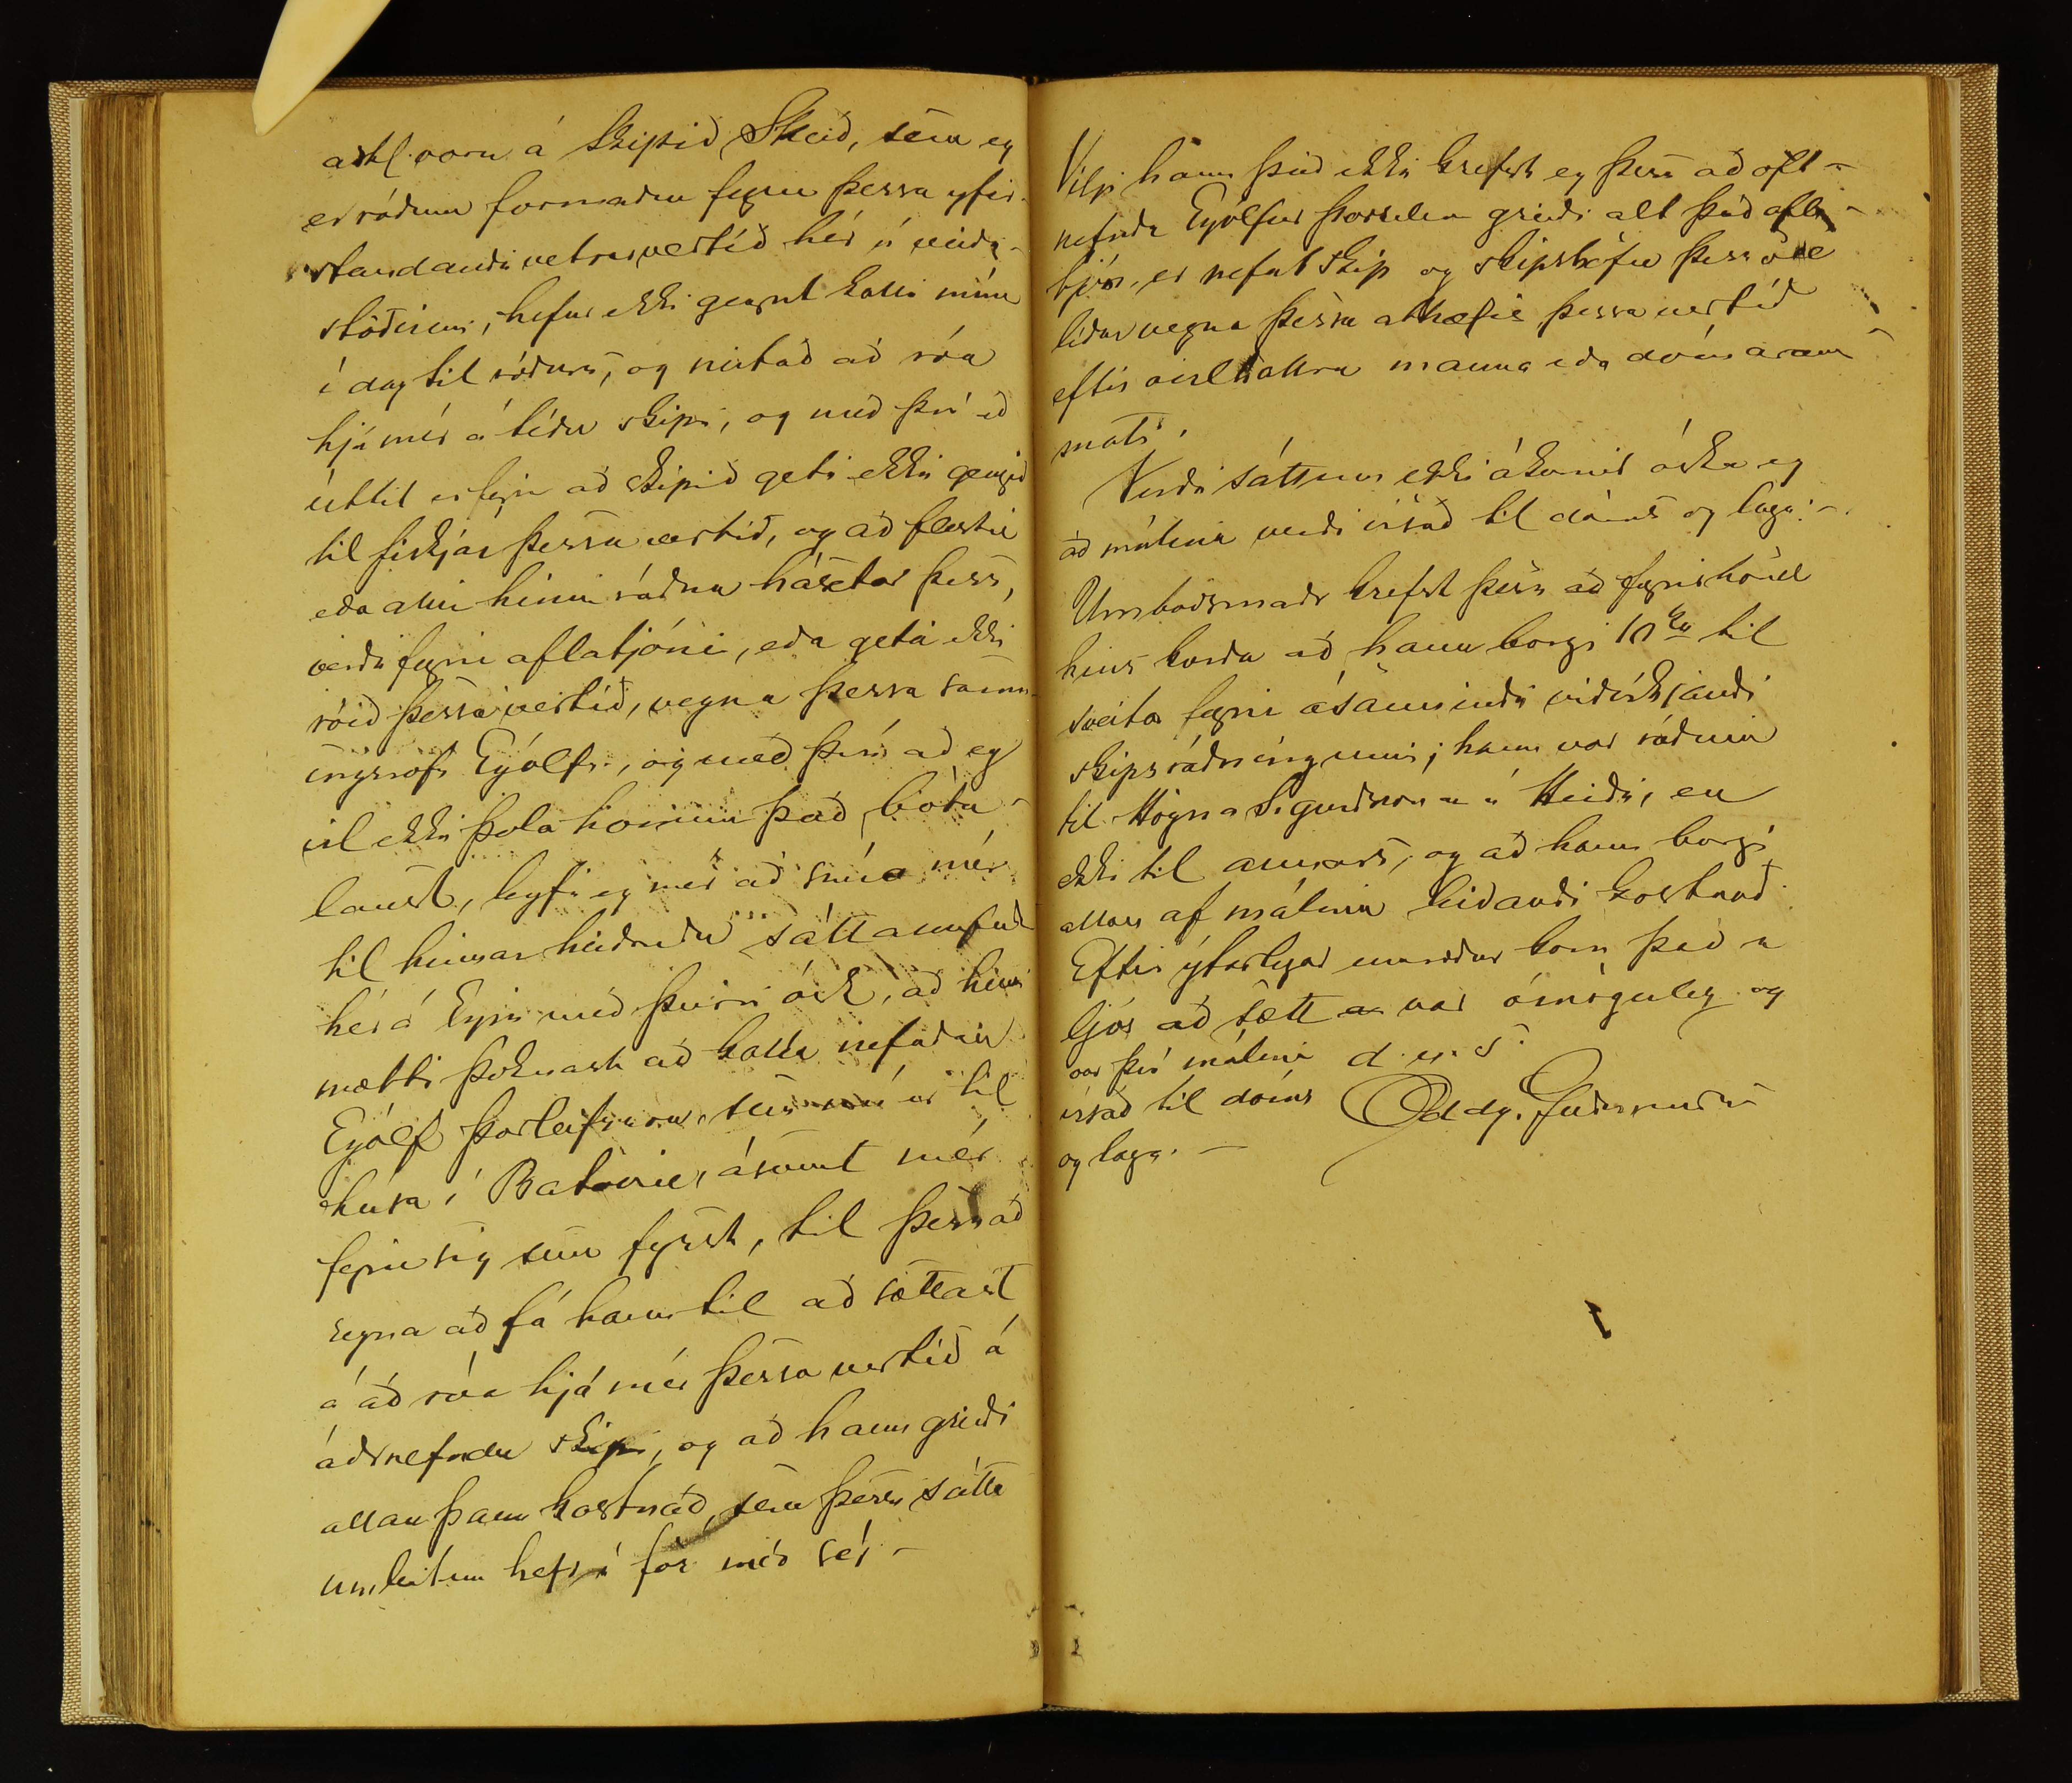 aðkl. voru á skipið Skeið, sem eg
er ráðinn formaður fyrir þessa yfir-
standandi vetrarvertíð hér í veiði-
stöðinni, hefur ekki gegnt kalli mínu
í dag til róðurs, og neitað að róa
hjá mér á téðu skipi, og með því að
útlit er fyrir að skipið geti ekki gengið
til fiskjar þessa vertíð, og að flestir
eða allir hinir ráðnu hásetar þess,
verði fyrir aflatjóni, eða geta ekki
róið þessa vertíð, vegna þessa samn-
ingsrofs Eyólfs, og með því að eg
vil ekki þola honum það bóta-
laust, leyfi eg mér að snúa mér
til hinnar heiðruðu sáttanefndar
hér á Eyju með þeirri ósk, að henni
mætti þóknast að kalla nefndan
Eyólf Þorleifsson, sem nú er til
húsa í Batavíu, ásamt mér
fyrir sig sem fyrst, til þess að
reyna að fá hann til að sættast
á að róa hjá mér þessa vertíð á
áðrnefndu skipi, og að hann greiði
allan þann kostnað, sem þessi sátta
umleitun hefr í för með sér –
Vilji hann það ekki krefst eg þess að oft-
nefndr Eyólfur Þorleifsson greiði alt það afla-
tjón, er nefnt skip og skipshöfn þess öll
líður vegna þessa athæfis þessa vertíð
eftir óvilhallra manna eða dómarans
mati.
Verði sáttum ekki ákomið óska eg
að málinu verði vísað til dóms og laga. –
Umboðsmaðr krefst þess að fyrir hönd
hins kærða að hann borgi 10 kr til
sveitar fyrir ósannindi viðvíkjandi
skipsráðningunni; hann var ráðinn
til Högna Sigurðssonar í Heiði, en
ekki til annars, og að hann borgi
allan af málinu leiðandi kostnað.
Eftir ýtarlegar umræður kom það í
ljós að sætt var ómöguleg og
var því málinu d. u. s.
vísað til dóms Oddg. Guðmundsen
og laga. –